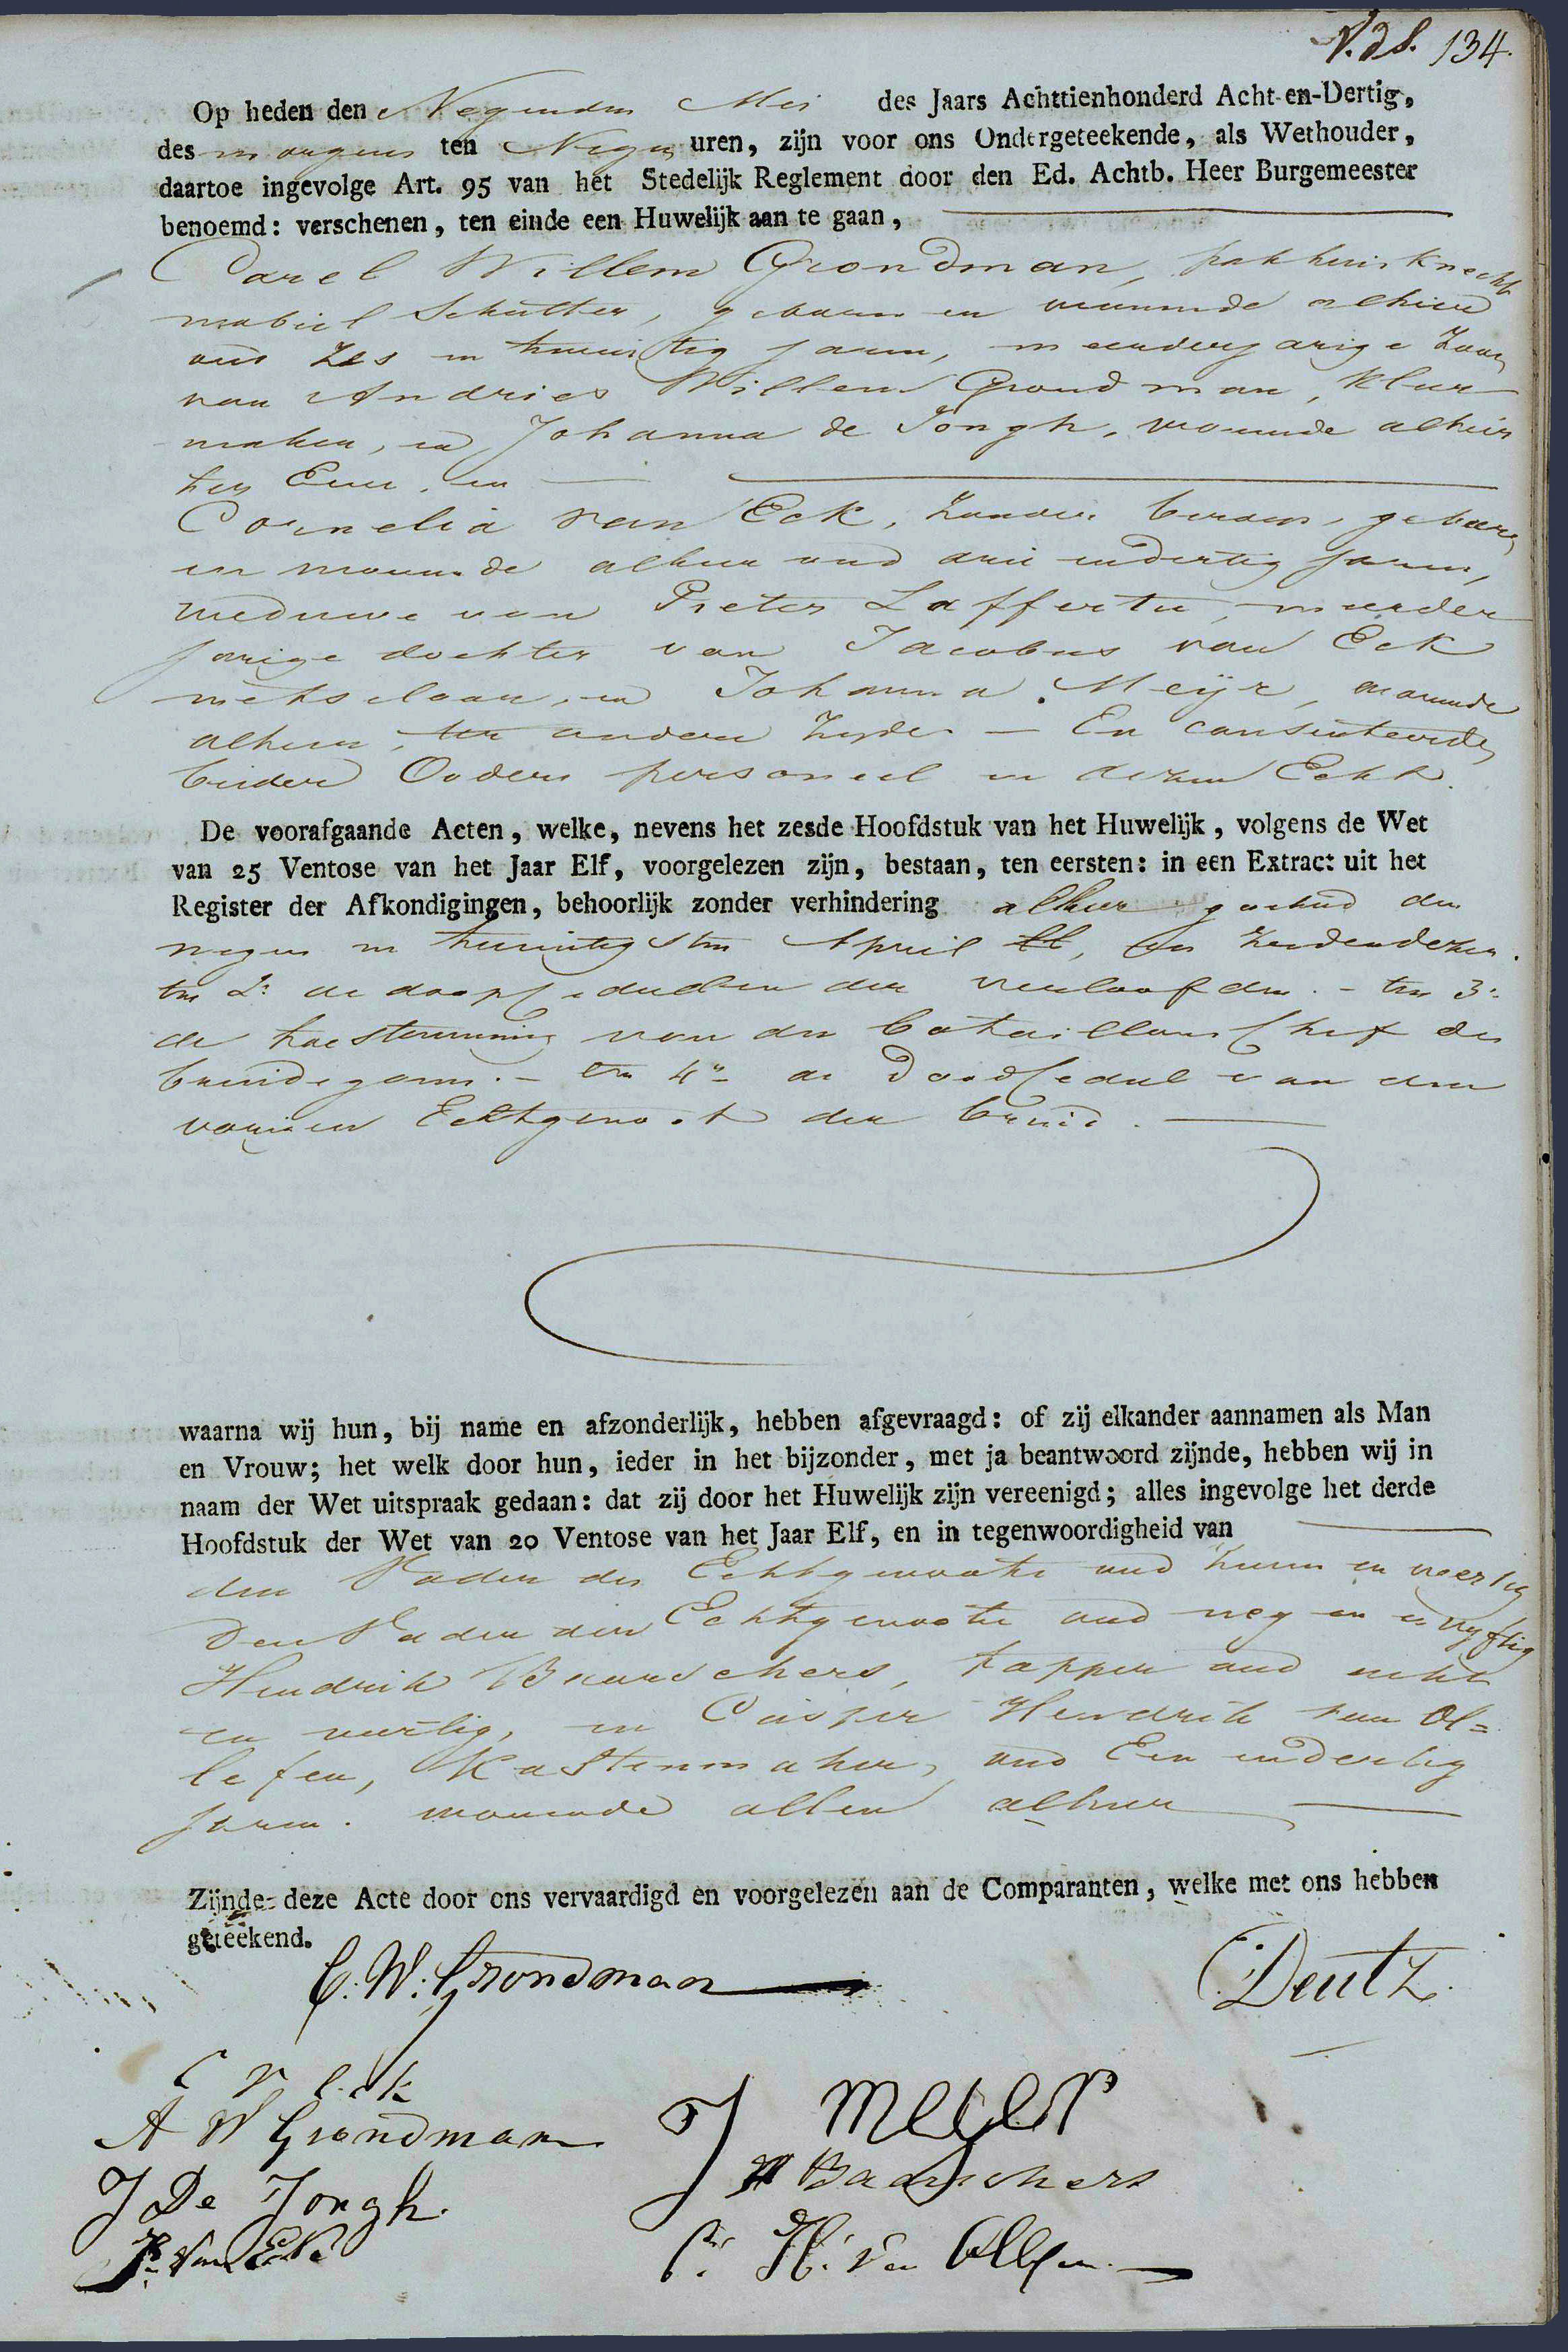 V.d.S. 134.
Op heden den Negenden Mei des Jaars Achttienhonderd Acht-en-Dertig,
des morgens ten Negen uren, zijn voor ons Ondergeteekende, als Wethouder,
daartoe ingevolge Art. 95 van het Stedelijk Reglement door den Ed. Achtb. Heer Burgemeester
benoemd: verschenen, ten einde een Huwelijk aan te gaan,
Carel Willem Grondman, pakhuisknecht
mobiel Schutter, geboren en wonende alhier
oud Zes en twintig jaren, meerderjarige Zoon
van Andries Willem Grondman, kleer
maker, en Johanna de Jongh, wonende alhier
ter Eene, en
Cornelia van Eck, zonder beroep, geboren
en wonende alhier oud drie en dertig jaren,
weduwe van Pieter Laffertu, meerder
jarige dochter van Jacobus van Eck
metselaar, en Johanna Meijr, wonende
alhier, ter andere Zyde. — En consenteerden
beider Ouders personeel in dezen Echt.
De voorafgaande Acten, welke, nevens het zesde Hoofdstuk van het Huwelijk, volgens de Wet
van 25 Ventose van het Jaar Elf, voorgelezen zijn, bestaan, ten eersten: in een Extract uit het
Register der Afkondigingen, behoorlijk zonder verhindering alhier geschied den
negen en twintigsten April ll, en zesden dezer.
ten 2: de doopcedullen der verloofden. - ten 3:
de toestemming van den Bataillons Chef des
bruidegoms. - ten 4: de Doodcedul van den
vorigen Echtgenoot der bruid.
waarna wij hun, bij name en afzonderlijk, hebben afgevraagd: of zij elkander aannamen als Man
en Vrouw; het welk door hun, ieder in het bijzonder, met ja beantwoord zijnde, hebben wij in
naam der Wet uitspraak gedaan: dat zij door het Huwelijk zijn vereenigd; alles ingevolge het derde
Hoofdstuk der Wet van 20 Ventose van het Jaar Elf, en in tegenwoordigheid van
den Vader des Echtgenoots oud twee en veertig
Den Vader der Echtgenoote oud negen en vyftig
Hendrik Baarschers, tapper oud acht
en veertig, en Casper Hendrik van Ol=
lefen, Kastenmaker, oud Een en dertig
jaren. wonende allen alhier
Zijnde deze Acte door ons vervaardigd en voorgelezen aan de Comparanten, welke met ons hebben
geteekend.
C. W. Grondman
Deutz.
C v Eck
A W Grondman
J Meijer
J De Jongh.
H Baarschers
J. van Eck
C. H. van Ollefen.